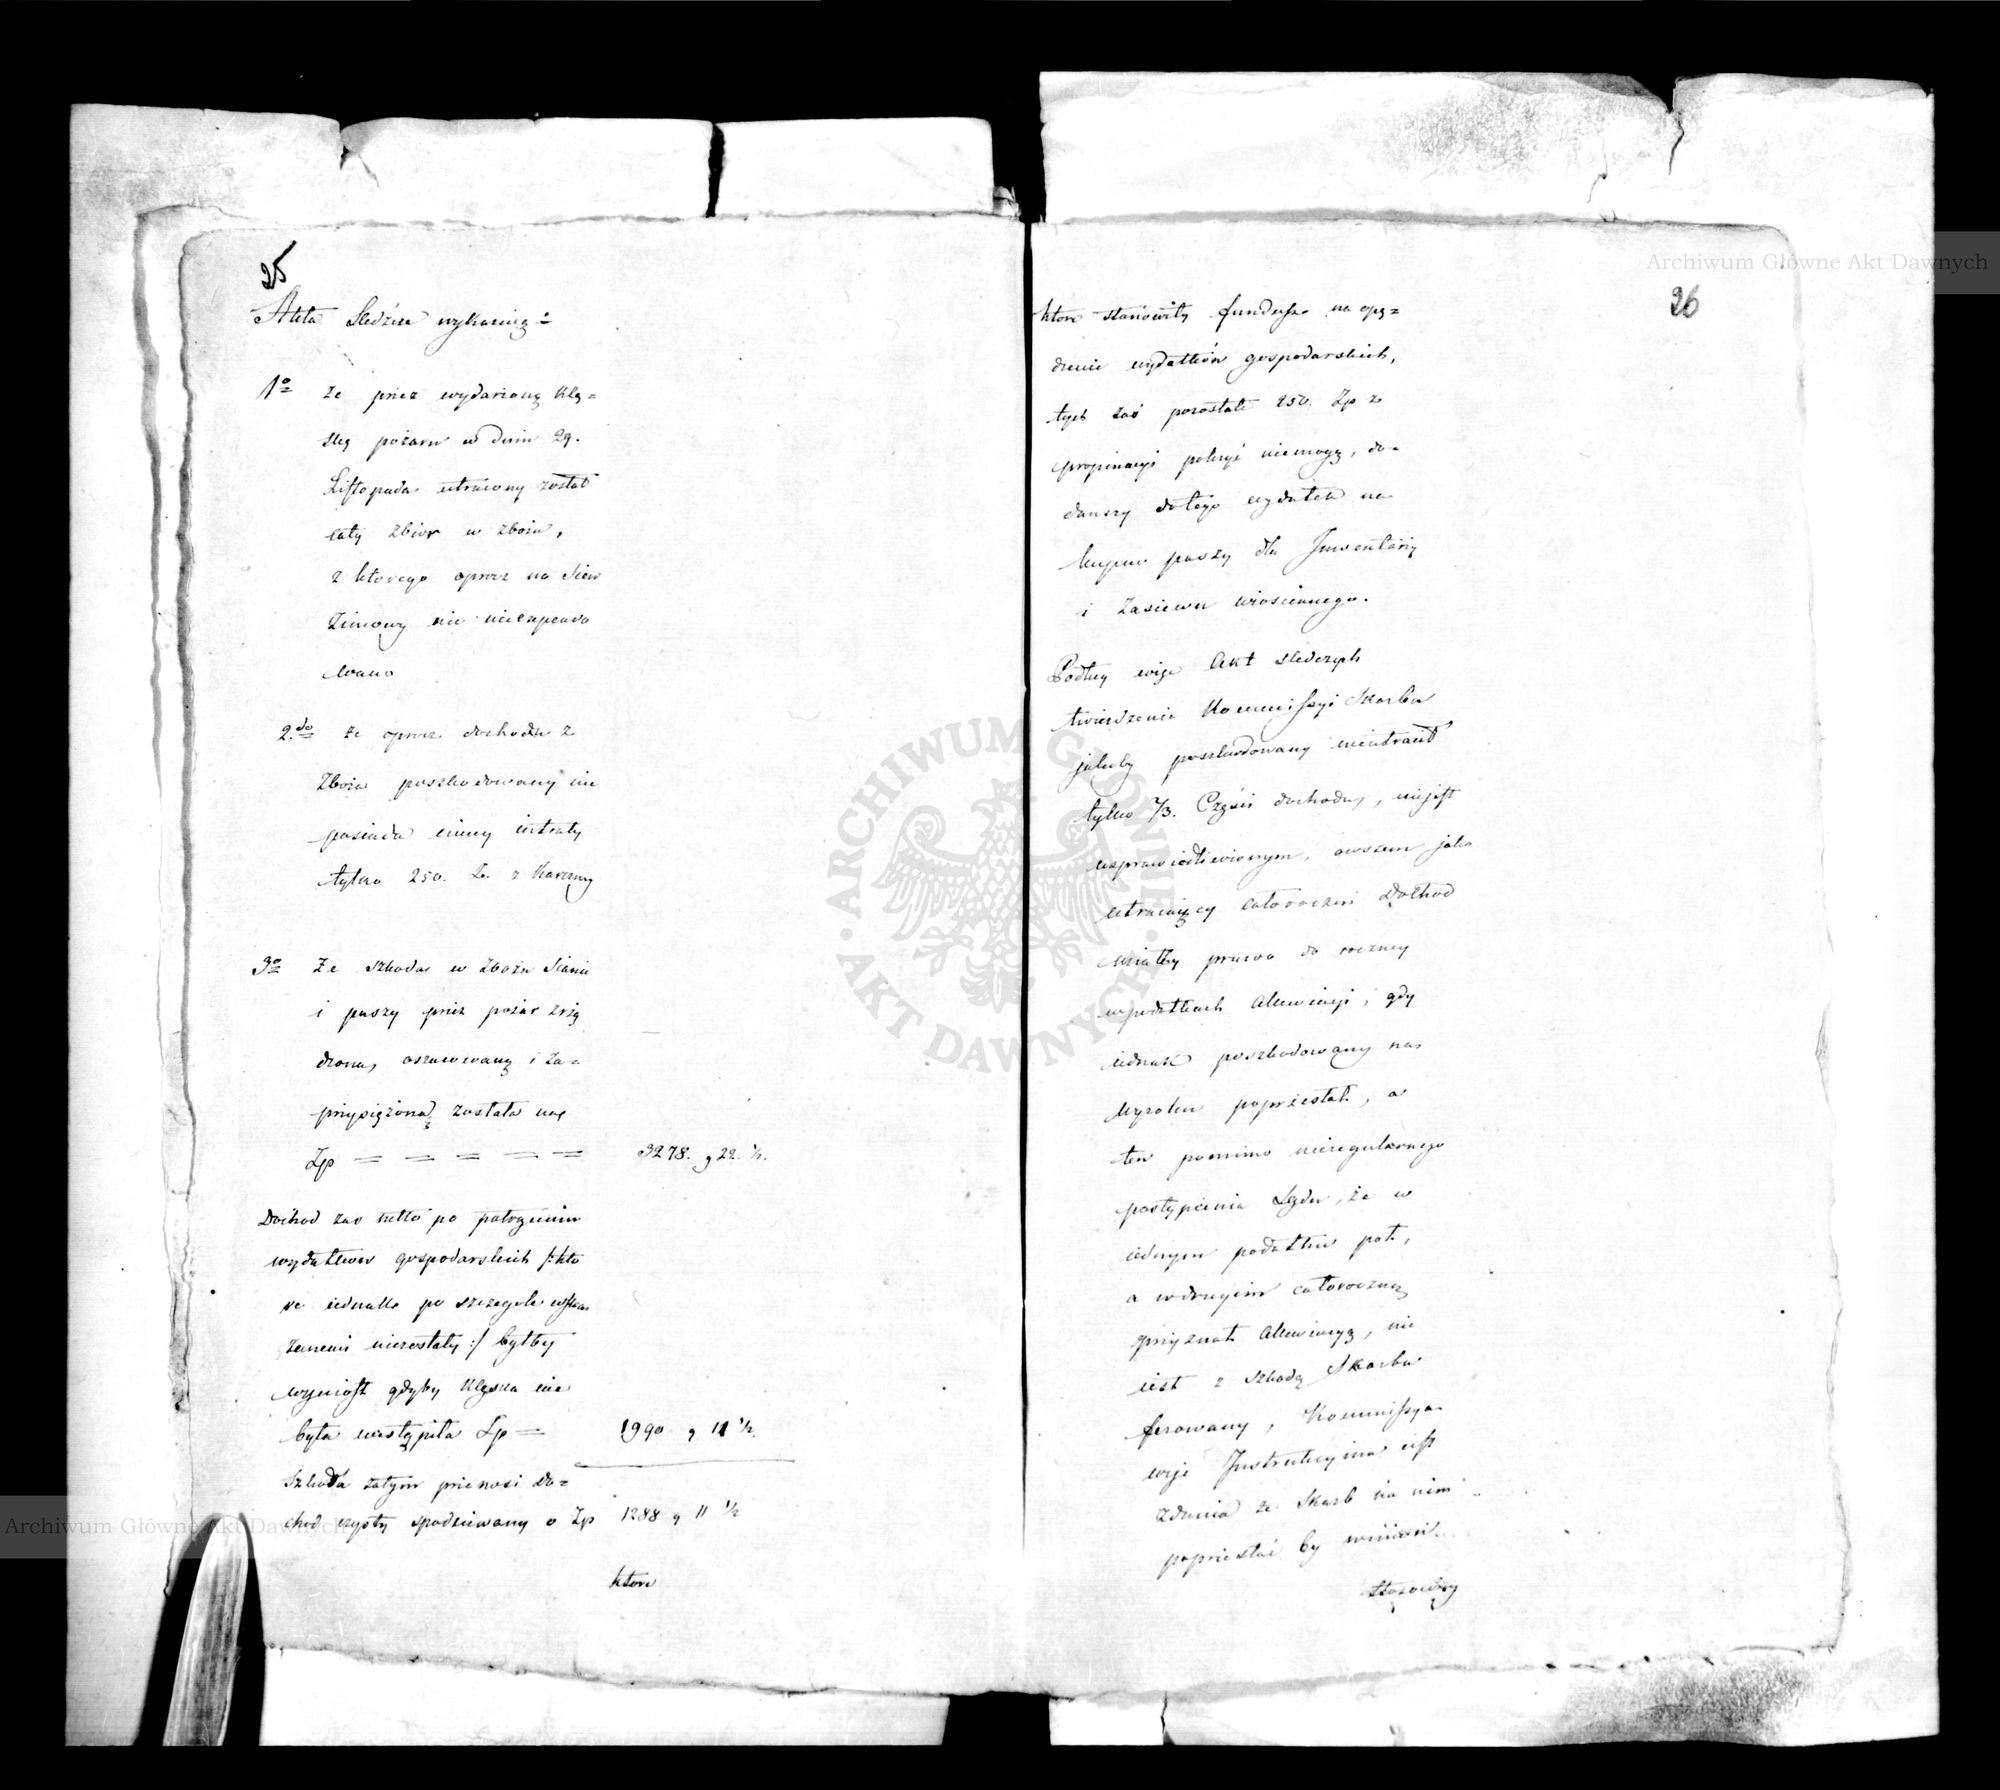 25
Akta śledcze wykazuią:
1o że przez wydarzoną Klę=
skę pożaru w dniu 29.
Listopada utracony został
cały zbior w zbożu,
z ktorego oprocz na siew
zimowy nic niewyexpendo
wano
2.do że oprocz dochodu z
zboża poszkodowany nie
posiada inney intraty
tylko 250. Zł. z Karczmy
3o Że szkoda w zbożu sianie
i paszy przez pożar zrzą
dzona, oszacowaną i za=
przysiężoną została na
Zp = = = = = 3278. g 22 ½.
Dochod zaś netto po potrąceniu
wydatkow gospodarskich /: kto
re iednakże po szczegole wyka
zanemi niezostały :/ byłby
wyniosł gdyby Klęska nie
była nastąpiła Zp = 1990 g 11 ½.
Szkoda zatym przenosi do=
chod czysty spodziewany o Zp 1288 g 11 ½
ktore
26
ktore stanowiły fundusz na opę=
dzenie wydatków gospodarskich,
tych zaś pozostałe 250. Zp z
propinacyi pokryć niemogą, do=
dawszy do tego wydatek na
kupno paszy dla Inwentarzy
i Zasiewu wiosennego.
Podług więc Akt śledczych
twierdzenie Kommissyi Skarbu
jakoby poszkodowany nieutracił
tylko 2/3. Części dochodu, niejest
usprawiedliwionym, owszem jako
utracaiący całoroczni Dochod
miałby prawo do roczney
w podatkach Allewiacyi, gdy
iednak poszkodowany na
wyroku poprzestał, a
ten pomimo nieregularnego
postąpienia Sądu, że w
iednym podatku poł,
a w drugim całoroczną
przyznał Allewiacyą, nie
iest z szkodą Skarbu
ferowany, Kommissya
więc Instrukcyina iest
zdania że Skarb na nim
poprzestać by winien.